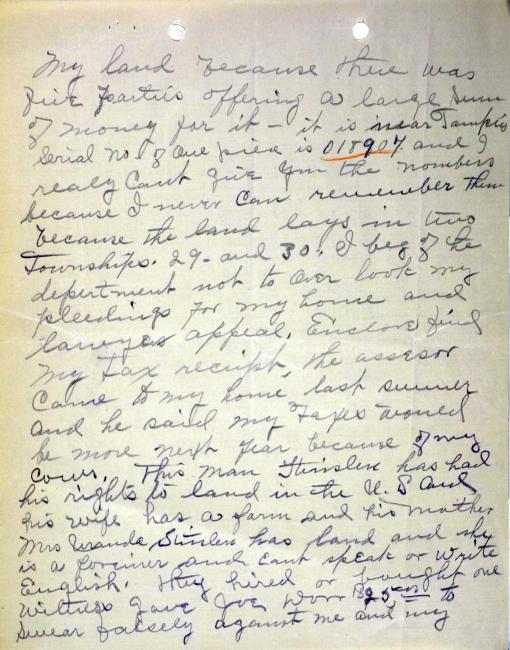 My land because there was
five parties offering a large sum
of money for it - it is near Tampico
Serial No. of one piece is 018907 and I
realy cant give you the numbers
because I never can remember them
because the land lays in two
Townships. 29 - and 30. I beg of the
depertment not to over look my
pleedings for my home and
lawyer appeal. Enclose find
my tax receipt, the assesor
came to my home last summer
and he said my taxes would
be more next year because of my
cows. This man has had
his rights to land in the U. S and
his wife has a farm and his mother
Mrs has land and she
is a foreiner and cant speak or write
English. They hired or bought one
witness gave Joe $25 to
swear falsely against me and my